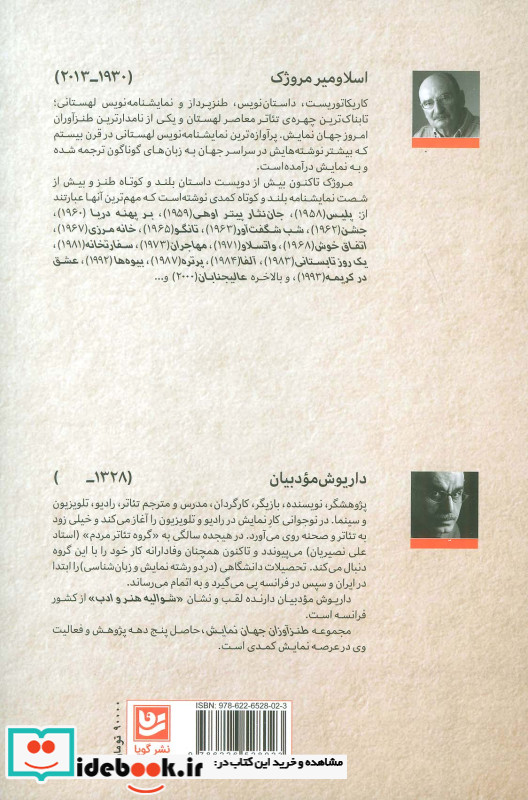 اسلاومیر مروژک (۱۹۳۰ــ۲۰۱۳)
کاریکاتوریست، داستان‌نویس، طنزپرداز و نمایشنامه‌نویس لهستانی؛
تابناک‌ترین چهره‌ی تئاتر معاصر لهستان و یکی از نامدارترین طنزآوران
امروز جهان نمایش. پرآوازه‌ترین نمایشنامه‌نویس لهستانی در قرن بیستم
که بیشتر نوشته‌هایش در سراسر جهان به زبان‌های گوناگون ترجمه شده
و به نمایش درآمده است.
مروژک تاکنون بیش از دویست داستان بلند و کوتاه طنز و بیش از
شصت نمایشنامه بلند و کوتاه کمدی نوشته است که مهم‌ترین آنها عبارتند
از: پلیس(۱۹۵۸)، جان‌نثار پیتر اوهی(۱۹۵۹)، بر پهنه دریا (۱۹۶۰)،
جشن(۱۹۶۲)، شب شگفت‌آور(۱۹۶۳)، تانگو(۱۹۶۵)، خانه مرزی(۱۹۶۷)،
اتفاق خوش(۱۹۶۸)، واتسلاو(۱۹۷۱)، مهاجران(۱۹۷۳)، سفارتخانه(۱۹۸۱)،
یک روز تابستانی(۱۹۸۳)، آلفا(۱۹۸۴)، پرتره(۱۹۸۷)، بیوه‌ها(۱۹۹۲)، عشق
در کریمه(۱۹۹۳)، و بالاخره عالیجنابان(۲۰۰۰) و...
داریوش مؤدبیان (۱۳۲۸ــ )
پژوهشگر، نویسنده، بازیگر، کارگردان، مدرس و مترجم تئاتر، رادیو، تلویزیون
و سینما. در نوجوانی کار نمایش در رادیو و تلویزیون را آغاز می‌کند و خیلی زود
به تئاتر و صحنه روی می‌آورد. در هیجده سالگی به «گروه تئاتر مردم» (استاد
علی نصیریان) می‌پیوندد و تاکنون همچنان وفادارانه کار خود را با این گروه
دنبال می‌کند. تحصیلات دانشگاهی (در دو رشته نمایش و زبان‌شناسی) را ابتدا
در ایران و سپس در فرانسه پی می‌گیرد و به اتمام می‌رساند.
داریوش مؤدبیان دارنده لقب و نشان «شوالیه هنر و ادب» از کشور
فرانسه است.
مجموعه طنزآوزان جهان نمایش، حاصل پنج دهه پژوهش و فعالیت
وی در عرصه نمایش کمدی است.
ISBN: 978-622-6528-02-3
نشر گویا
۹۰۰۰۰ تومان
مشاهده و خرید این کتاب در:
idebook.ir